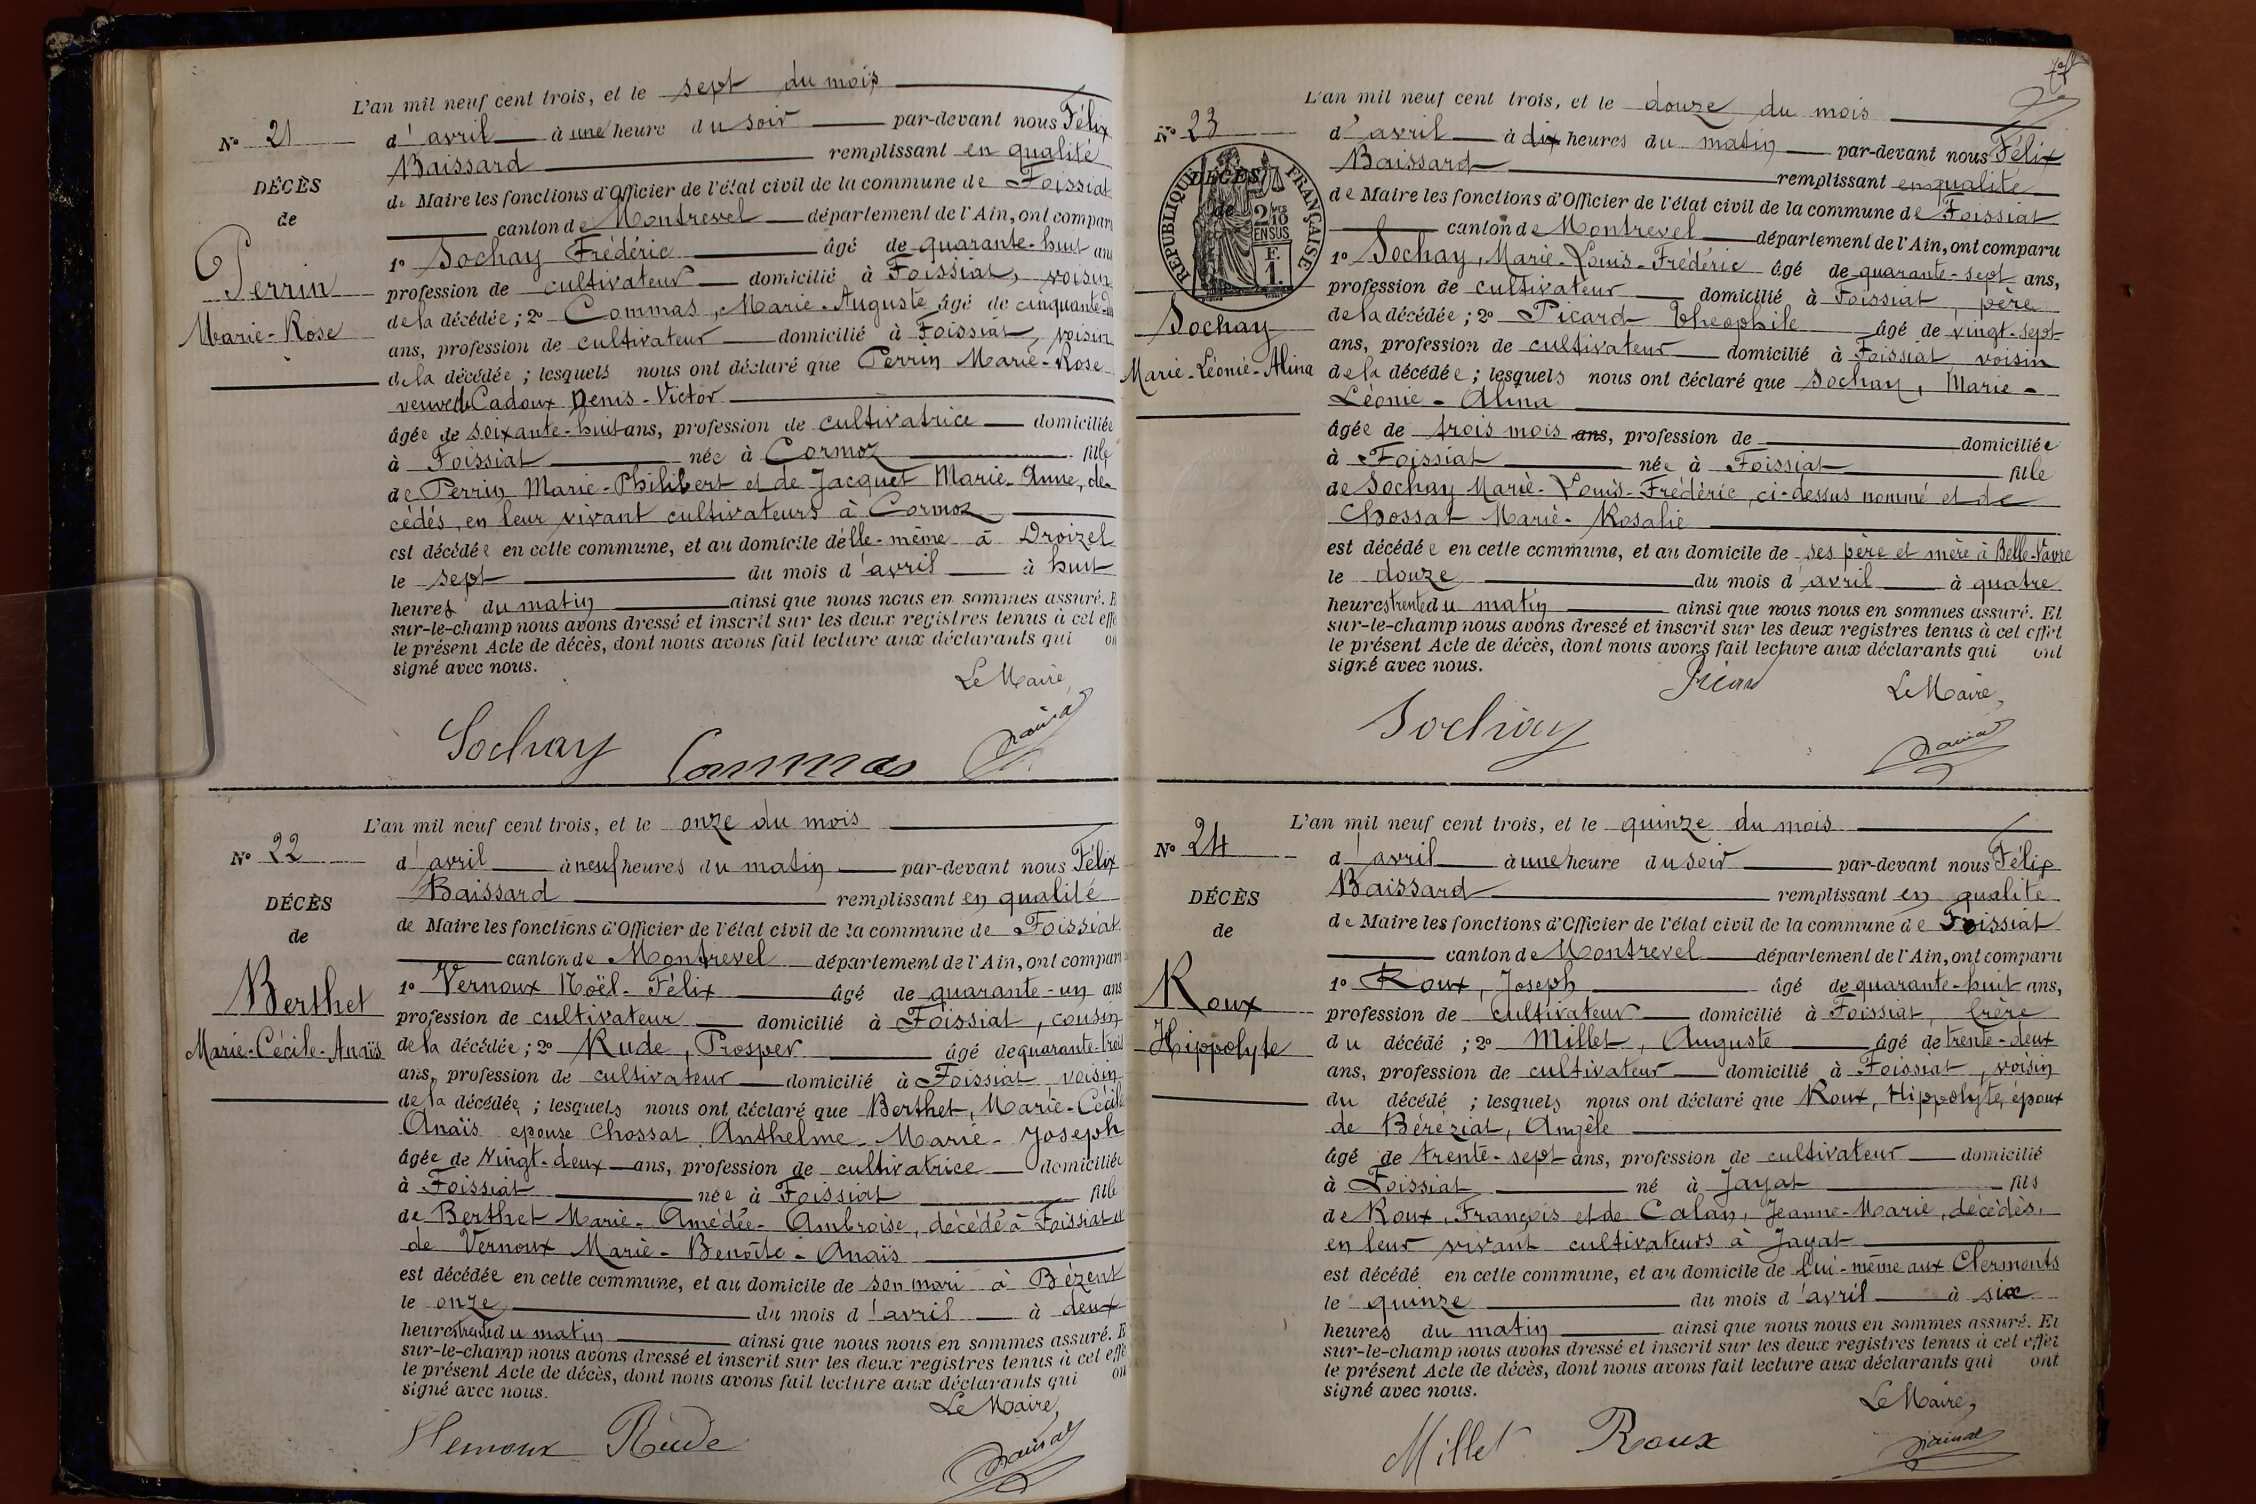 L'an mil neuf cent trois, et le sept du mois
No 21
d'avril à une heure du soir par-devant nous Félix
Baissard remplissant en qualité
DÉCÈS
de Maire les fonctions d'Officier de l'état civil de la commune de Foissiat
de
canton de Montrevel département de l'Ain, ont compar
1o Sochay Frédéric âgé de quarante-huit ans
Perrin
profession de cultivateur domicilié à Foissiat, voisin
de la décédée ; 2o Commas, Marie-Auguste âgé de cinquante
Marie-Rose
ans, profession de cultivateur domicilié à Foissiat, voisin
de la décédée ; lesquels nous ont déclaré que Perrin Marie-Rose
veuve de Cadoux Denis-Victor
âgée de soixante-huit ans, profession de cultivatrice domiciliée
à Foissiat née à Cormoz fille
de Perrin Marie-Philibert et de Jacquet Marie-Anne, dé-
cédés, en leur vivant cultivateurs à Cormoz
est décédée en cette commune, et au domicile d'elle-même à Droizel
le sept du mois d'avril à huit
heures du matin ainsi que nous nous en sommes assuré. E
sur-le-champ nous avons dressé et inscrit sur les deux registres tenus à cet effe
le présent Acte de décès, dont nous avons fait lecture aux déclarants qui on
signé avec nous.
Le Maire,
Sochay Commas
L'an mil neuf cent trois, et le onze du mois
No 22
d'avril à neuf heures du matin par-devant nous Félix
Baissard remplissant en qualité
DÉCÈS
de Maire les fonctions d'Officier de l'état civil de la commune de Foissiat
de
canton de Montrevel département de l'Ain, ont compar
1o Vernoux Noël-Félix âgé de quarante-un ans
Berthet
profession de cultivateur domicilié à Foissiat, cousin
Marie-Cécile-Anaïs
de la décédée ; 2o Rude, Prosper âgé de quarante-trois
ans, profession de cultivateur domicilié à Foissiat voisin
de la décédée ; lesquels nous ont déclaré que Berthet, Marie-Cécile
Anaïs epouse Chossat Anthelme-Marie-Joseph
âgée de vingt-deux ans, profession de cultivatrice domiciliée
à Foissiat née à Foissiat fille
de Berthet Marie-Amédée-Ambroise, décédé à Foissiat et
de Vernoux Marie-Benoîte-Anaïs
est décédée en cette commune, et au domicile de son mari à Bézent
le onze du mois d'avril à deux
heures trente du matin ainsi que nous nous en sommes assuré. E
sur-le-champ nous avons dressé et inscrit sur les deux registres tenus à cet effe
le présent Acte de décès, dont nous avons fait lecture aux déclarants qui on
signé avec nous.
Le Maire,
Vernoux Rude
L'an mil neuf cent trois, et le douze du mois
No 23
d'avril à dix heures du matin par-devant nous Félix
Baissard remplissant en qualité
RÉPUBLIQUE FRANÇAISE
DÉCÈS
de
2/10 EN SUS
F. 1.
de Maire les fonctions d'Officier de l'état civil de la commune de Foissiat
canton de Montrevel département de l'Ain, ont comparu
1o Sochay, Marie-Louis-Frédéric âgé de quarante-sept ans,
profession de cultivateur domicilié à Foissiat, père
Sochay
de la décédée ; 2o Picard Théophile âgé de vingt-sept
ans, profession de cultivateur domicilié à Foissiat voisin
Marie-Léonie-Alina
de la décédée ; lesquels nous ont déclaré que Sochay, Marie-
Léonie-Alina
âgée de trois mois ans, profession de domiciliée
à Foissiat née à Foissiat fille
de Sochay Marie-Louis-Frédéric, ci-dessus nommé et de
Chossat Marie-Rosalie
est décédée en cette commune, et au domicile de ses père et mère à Belle-Vavre
le douze du mois d'avril à quatre
heures trente du matin ainsi que nous nous en sommes assuré. Et
sur-le-champ nous avons dressé et inscrit sur les deux registres tenus à cet effet
le présent Acte de décès, dont nous avons fait lecture aux déclarants qui ont
signé avec nous.
Picard Le Maire,
Sochay
L'an mil neuf cent trois, et le quinze du mois
No 24
d'avril à une heure du soir par-devant nous Félix
Baissard remplissant en qualité
DÉCÈS
de Maire les fonctions d'Officier de l'état civil de la commune de Foissiat
de
canton de Montrevel département de l'Ain, ont comparu
1o Roux, Joseph âgé de quarante-huit ans,
Roux
profession de cultivateur domicilié à Foissiat, frère
Hippolyte
du décédé ; 2o Millet, Auguste âgé de trente-deux
ans, profession de cultivateur domicilié à Foissiat, voisin
du décédé ; lesquels nous ont déclaré que Roux, Hippolyte, époux
de Béréziat, Angèle
âgé de trente-sept ans, profession de cultivateur domicilié
à Foissiat né à Jayat fils
de Roux, François et de Calan, Jeanne-Marie, décédés,
en leur vivant cultivateurs à Jayat
est décédé en cette commune, et au domicile de lui-même aux Clermonts
le quinze du mois d'avril à six
heures du matin ainsi que nous nous en sommes assuré. Et
sur-le-champ nous avons dressé et inscrit sur les deux registres tenus à cet effet
le présent Acte de décès, dont nous avons fait lecture aux déclarants qui ont
signé avec nous.
Le Maire,
Millet Roux